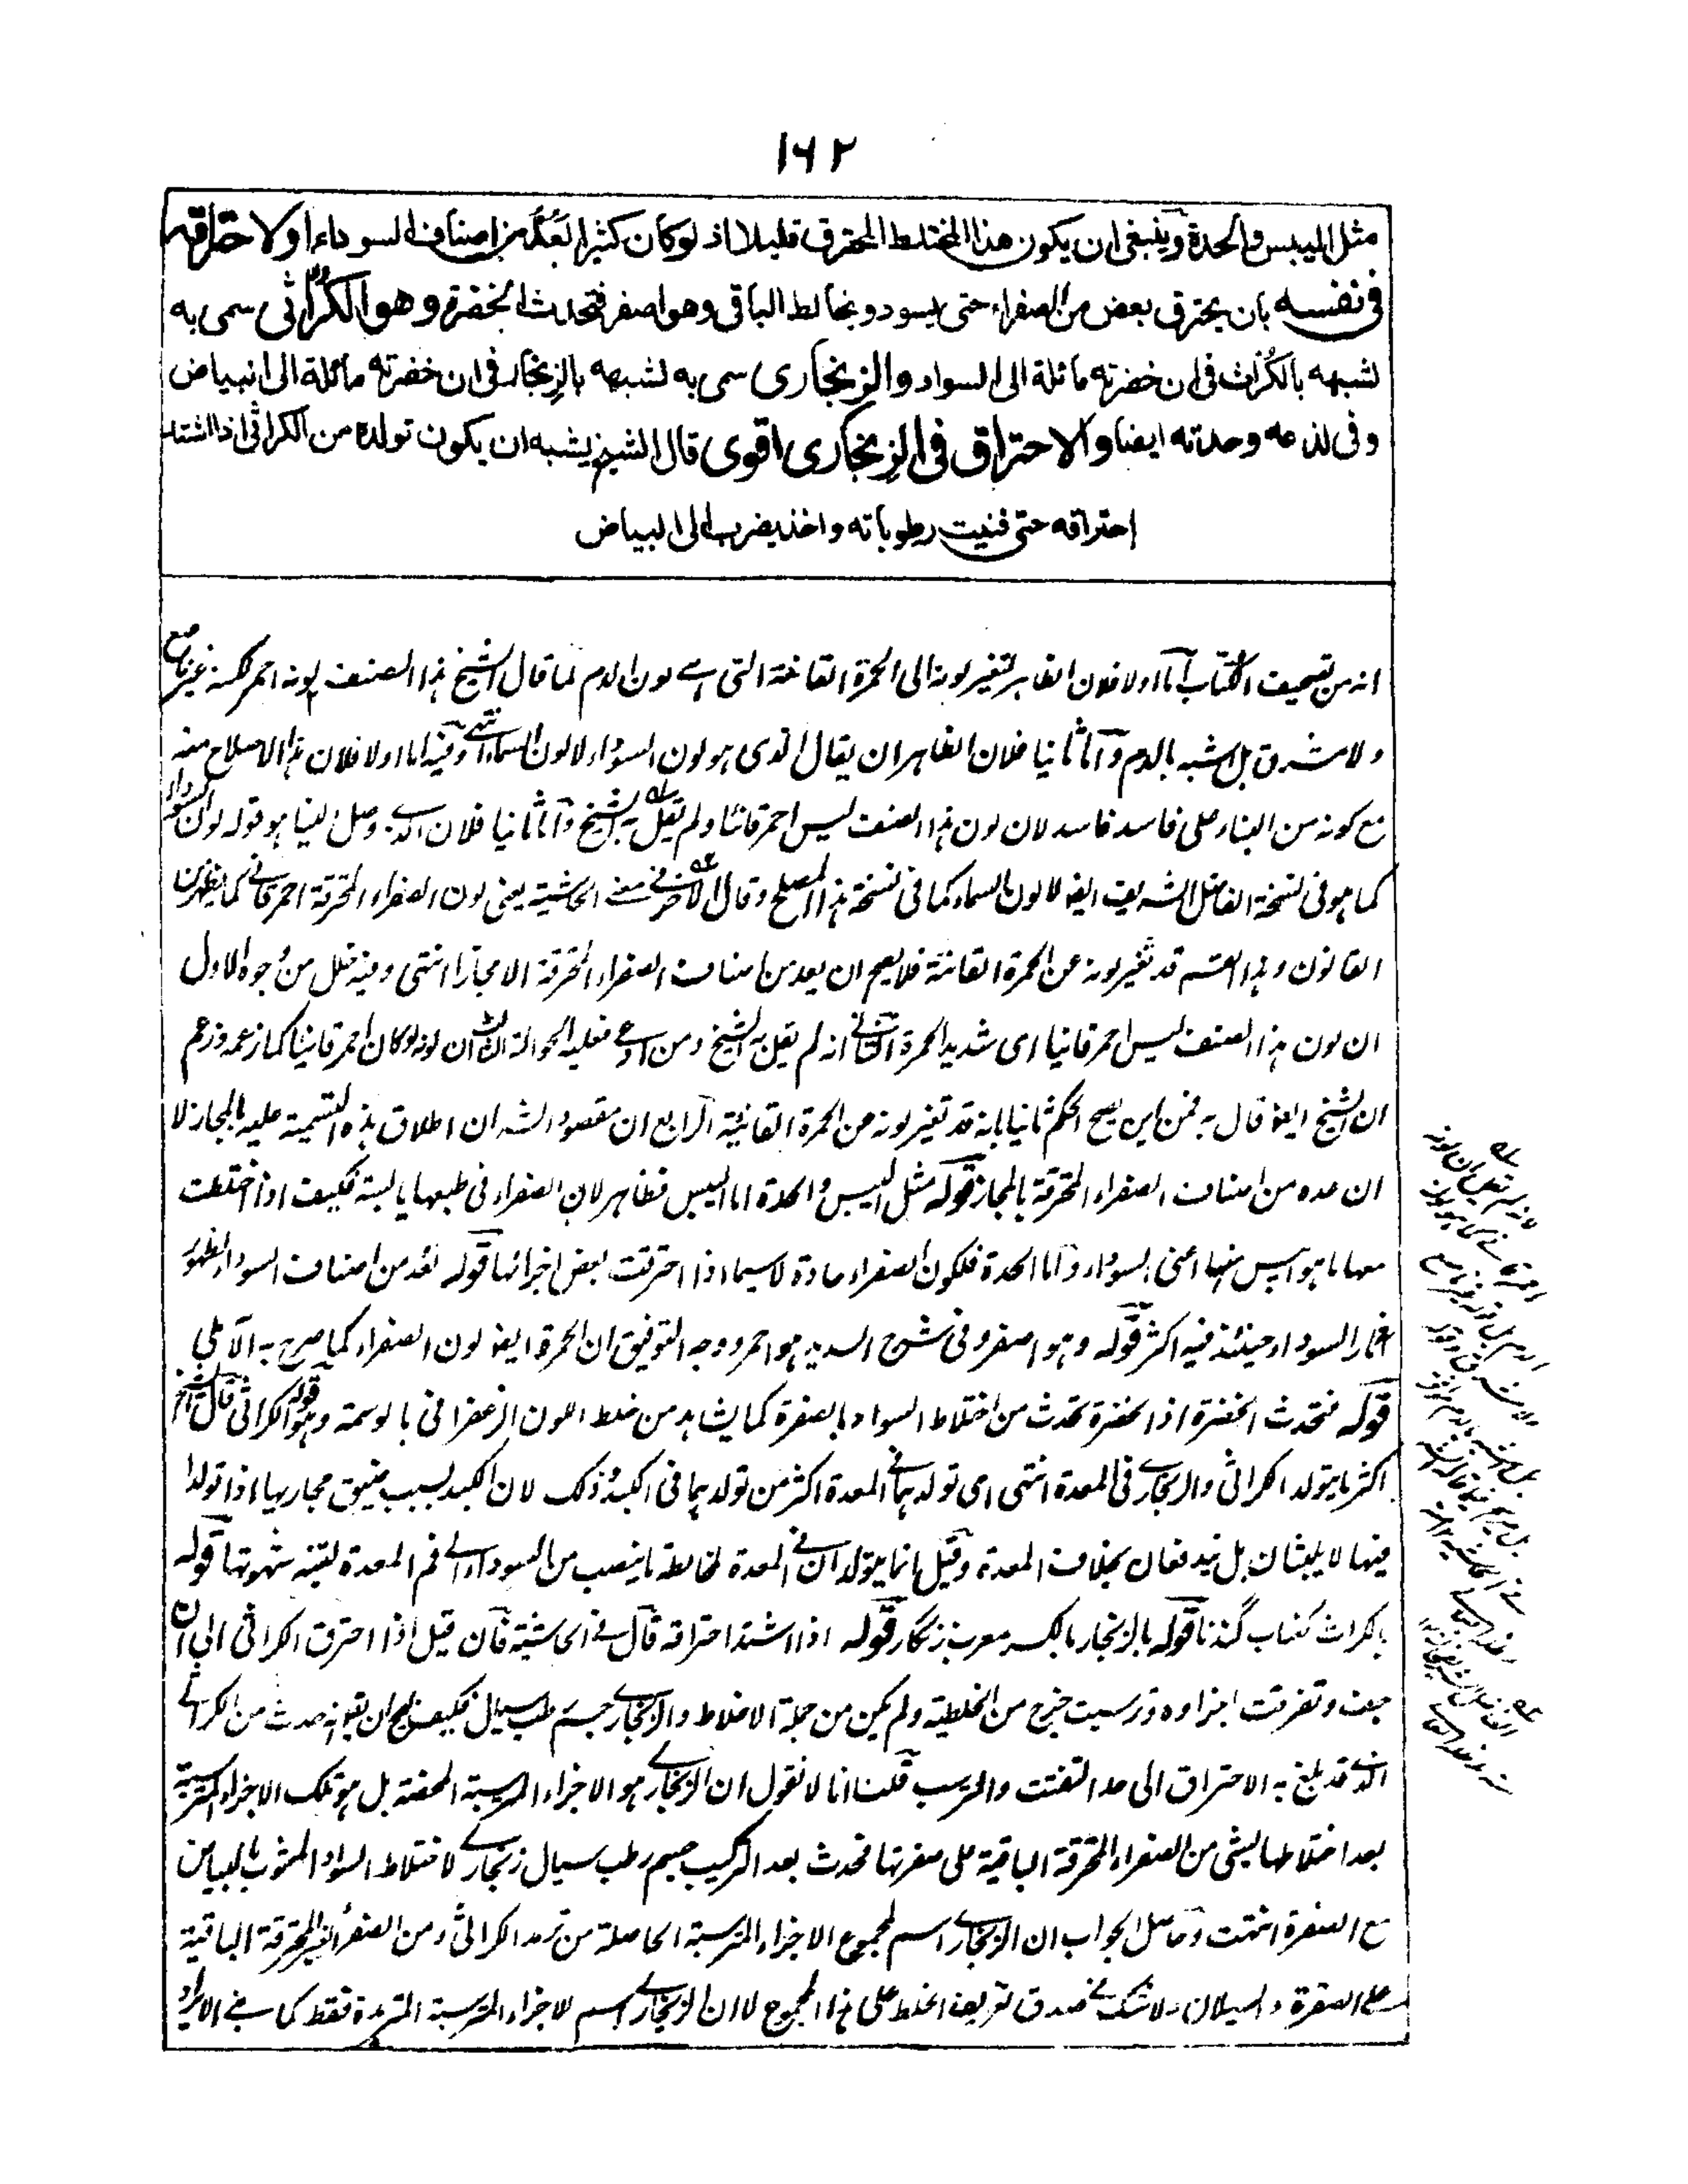 ١٦٢
مثل اليبس والحدة وينبغى ان يكون هذا المختلط المحترق قليلا اذ لوكان كثيرا لعُدَّ من اصناف السوداء اولاحتراقه
فى نفسه بان يحترق بعض من الصفراء حتى يسود ويخالط الباقى وهو اصفر فتحدث الخضرة وهو الكُرَّاثى سمى به
لشبهه بالكُرّاث فى ان خضرته مائلة الى السواد والزنجارى سمى به لشبهه بالزِنجار فى ان خضرته مائلة الى البياض
وفى لذعه وحدته ايضا والاحتراق فى الزنجارى اقوى قال الشيخ يشبه ان يكون تولده من الكراثى اذا اشتد
احتراقه حتى فنيت رطوباته واخذ يضرب الى البياض
انه من تصحيف الكتاب اما اولا فلان الظاهر لتغير لونه الى الحمرة القانئة التى هے لون الدم لما قال الشيخ هذا الصنف لونه احمر لكنه غير ناصع
ولا مشرق بل اشبه بالدم واما ثانيا فلان الظاهر ان يقال الذى هو لون السوداء لا لون السماء انتهى وفيه اما اولا فلان هذا الاصلاح منه
مع كونه من البناء على فاسد فاسد لان لون هذا الصنف ليس احمر قانئا ولم يقل به الشيخ واما ثانيا فلان الذے وصل الينا هو قوله لون السوداء
كما هو فى نسخة الفاضل الشريف ايضا لا لون السماء كما فى نسخة هذا المصلح وقال الآخر فے منه الحاشية يعنى لون الصفراء المحترقة احمر قانے كما يظهر من
القانون وهذا القسم قد تغير لونه عن الحمرة القانئة فلا يصح ان يعد من اصناف الصفراء المحترقة الا مجازا انتهى وفيه خلل من وجوه الاول
ان لون هذا الصنف ليس احمر قانيا اى شديد الحمرة الثانے انه لم يقل به الشيخ ومن ادعے فعليه الحوالة الثالث ان لونه لو كان احمر قانيا كما زعمه وزعم
ان الشيخ ايضا قال به فمن اين يصح الحكم ثانيا بانه قد تغير لونه من الحمرة القانية الرابع ان مقصود الشه ان اطلاق هذه التسمية عليه بالمجاز لا
ان عده من اصناف الصفراء المحترقة بالمجاز قوله مثل اليبس والحدة اما اليبس فظاهر لان الصفراء فى طبعها يابسة فكيف اذا اختلطت
معها ما هو ايبس منها اعنى السوداء واما الحدة فلكون الصفراء حادة لاسيما اذا احترقت بعض اجزائها قوله لعُد من اصناف السوداء لظهور
آثار السوداء حينئذ فيه اكثر قوله وهو اصفر وفى شرح السديد هو احمر ووجه التوفيق ان الحمرة ايضا لون الصفراء كما صرح به الآملى
قوله فتحدث الخضرة اذ الخضرة تحدث من اختلاط السواد بالصفرة كما يشاهد من خلط اللون الزعفرانى بالوسمة قوله وهو الكراثى قال الشيخ
اكثر ما يتولد الكراثى والزنجارے فى المعدة انتهى اى تولدهما فے المعدة اكثر من تولدهما فى الكبد وذلك لان الكبد بسبب ضيق مجاريها اذا تولدا
فيها لا يلبثان بل يندفعان بخلاف المعدة وقيل انما يتولدان فے المعدة لمخالطة ما ينصب من السوداء الے فم المعدة لتنبه شهوتها قوله
بالكراث كغراب گندنا قوله بالزنجار بالكسر معرب زنگار قوله اذا اشتد احتراقه قال فے الحاشية فان قيل اذا احترق الكراثى الى ان
جفت وتفرقت اجزاوه وترسبت خرج من الخلطية ولم يكن من جملة الاخلاط والزنجارے جسم رطب سيال فكيف يصح ان يقول انه حدث من الكراثے
الذے قد بلغ به الاحتراق الى حد التفتت والترسب قلنا انا لا نقول ان الزنجارے هو الاجزاء المترسبة المحضة بل هو تلك الاجزاء المترسبة
بعد اختلاطها بشئ من الصفراء المحترقة الباقية على صفرتها فحدث بعد التركيب جسم رطب سيال زنجارے لاختلاط السواد المشوب بالبياض
مع الصفرة انتهت وحاصل الجواب ان الزنجارے اسم لمجموع الاجزاء المترسبة الحاصلة من ترمد الكراثى ومن الصفراء الغير المحترقة الباقية
علے الصفرة والسيلان ولا شك فے صدق تعريف الخلط على هذا المجموع لا ان الزنجارے اسم للاجزاء المترسبة المترمدة فقط كما فے الايراد